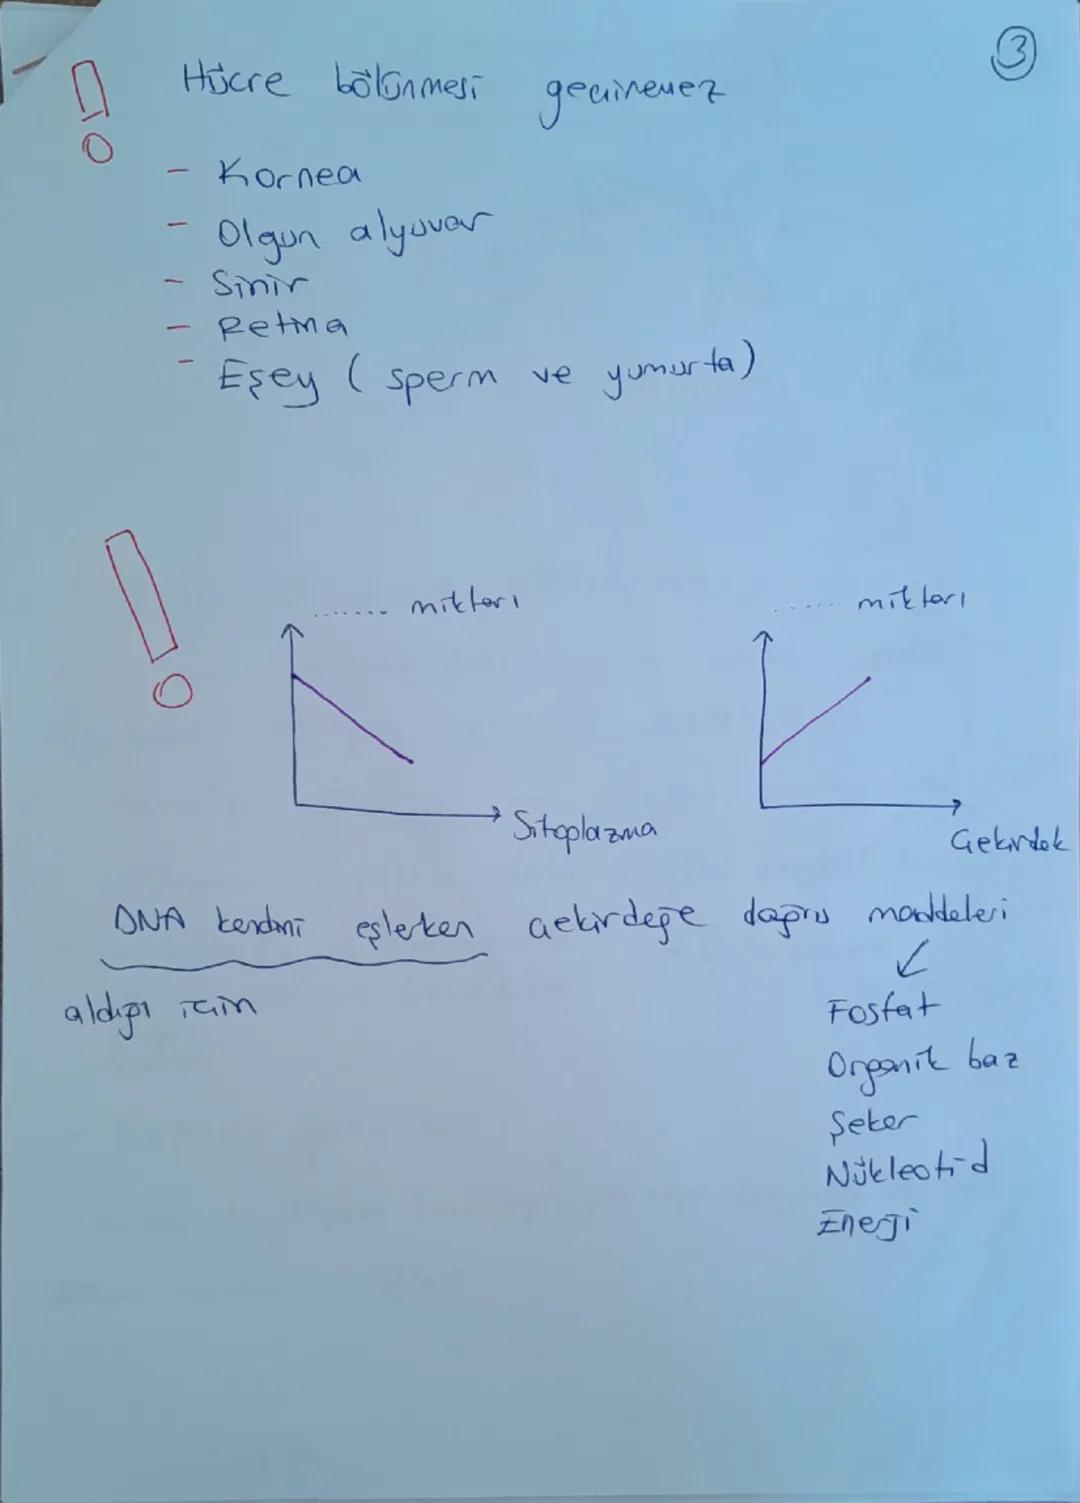 3
Hücre bölünmesi geçiremez
- Kornea
- Olgun alyuvar
- Sinir
- Retina
- Eşey (sperm ve yumurta)
....... miktarı
....... miktarı
Sitoplazma
Çekirdek
DNA kendini eşlerken çekirdeğe doğru maddeleri
aldığı için
Fosfat
Organik baz
Şeker
Nükleotid
Enerji